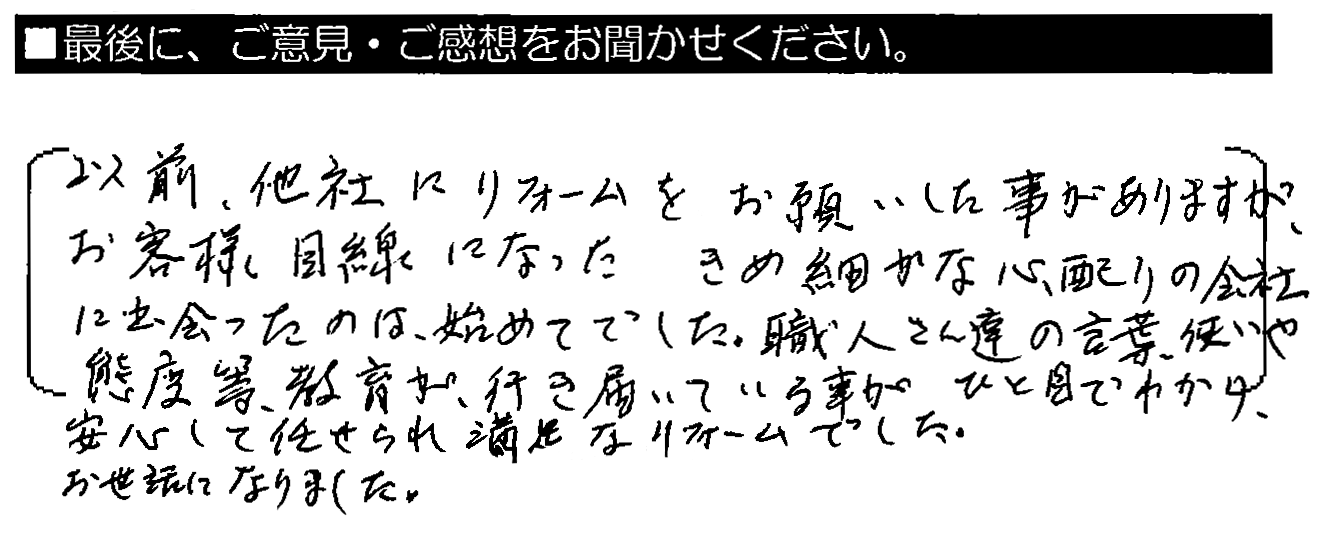 ■最後に、ご意見・ご感想をお聞かせください。
以前、他社にリフォームをお願いした事がありますが、
お客様目線になった きめ細かな心配りの会社
に出会ったのは、始めてでした。職人さん達の言葉使いや
態度等、教育が、行き届いている事が ひと目でわかり、
安心して任せられ満足なリフォームでした。
お世話になりました。